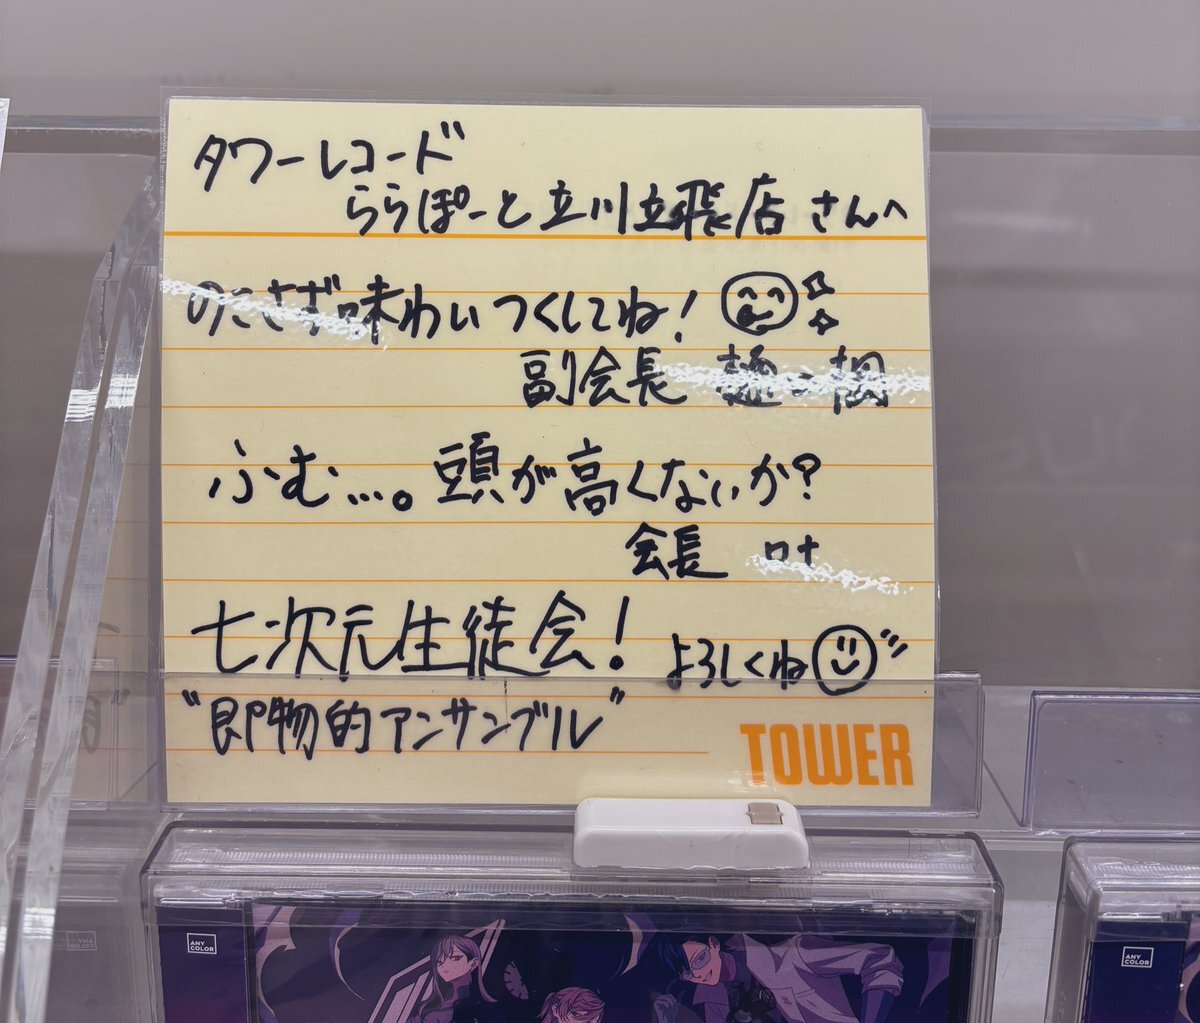 タワーレコード
ららぽーと立川立飛店さんへ
のこさず味わいつくしてね!
副会長
ふむ…。頭が高くないか?
会長 叶
七次元生徒会! よろしくね
"即物的アンサンブル"
TOWER
ANY
COLOR
ANY
COLOR